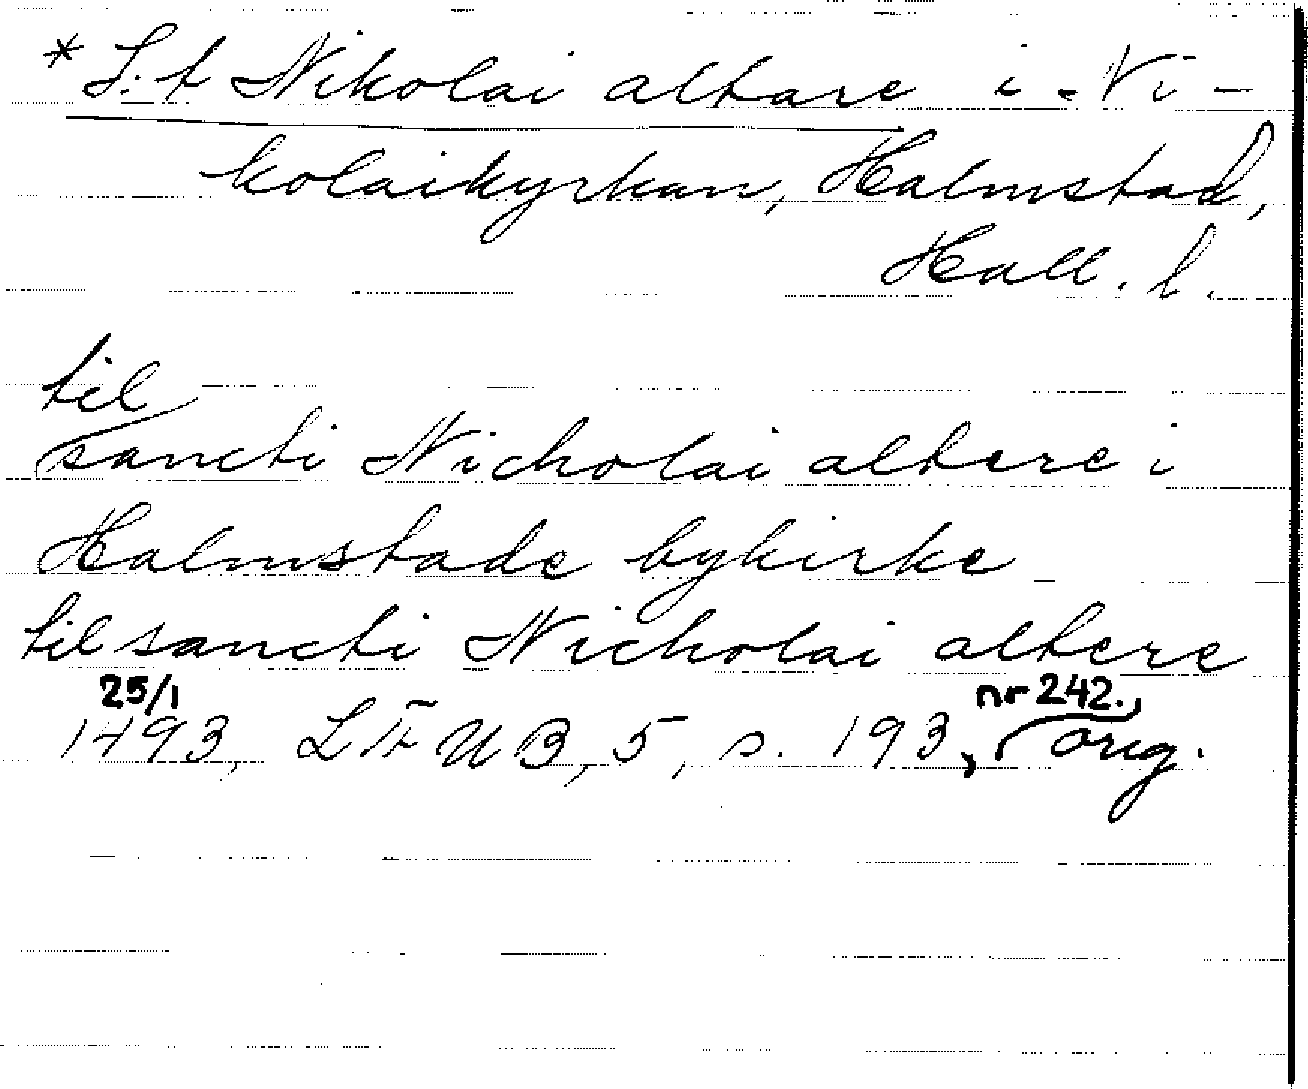 * S:t Nikolai altare i Ni-
kolaikyrkan, Halmstad,
Hall. l.
til
sancti Nicholai altere i
Halmstade bykirke
til sancti Nicholai altere
25/1 nr 242.,
1493, LÆUB, 5, s. 193, orig.